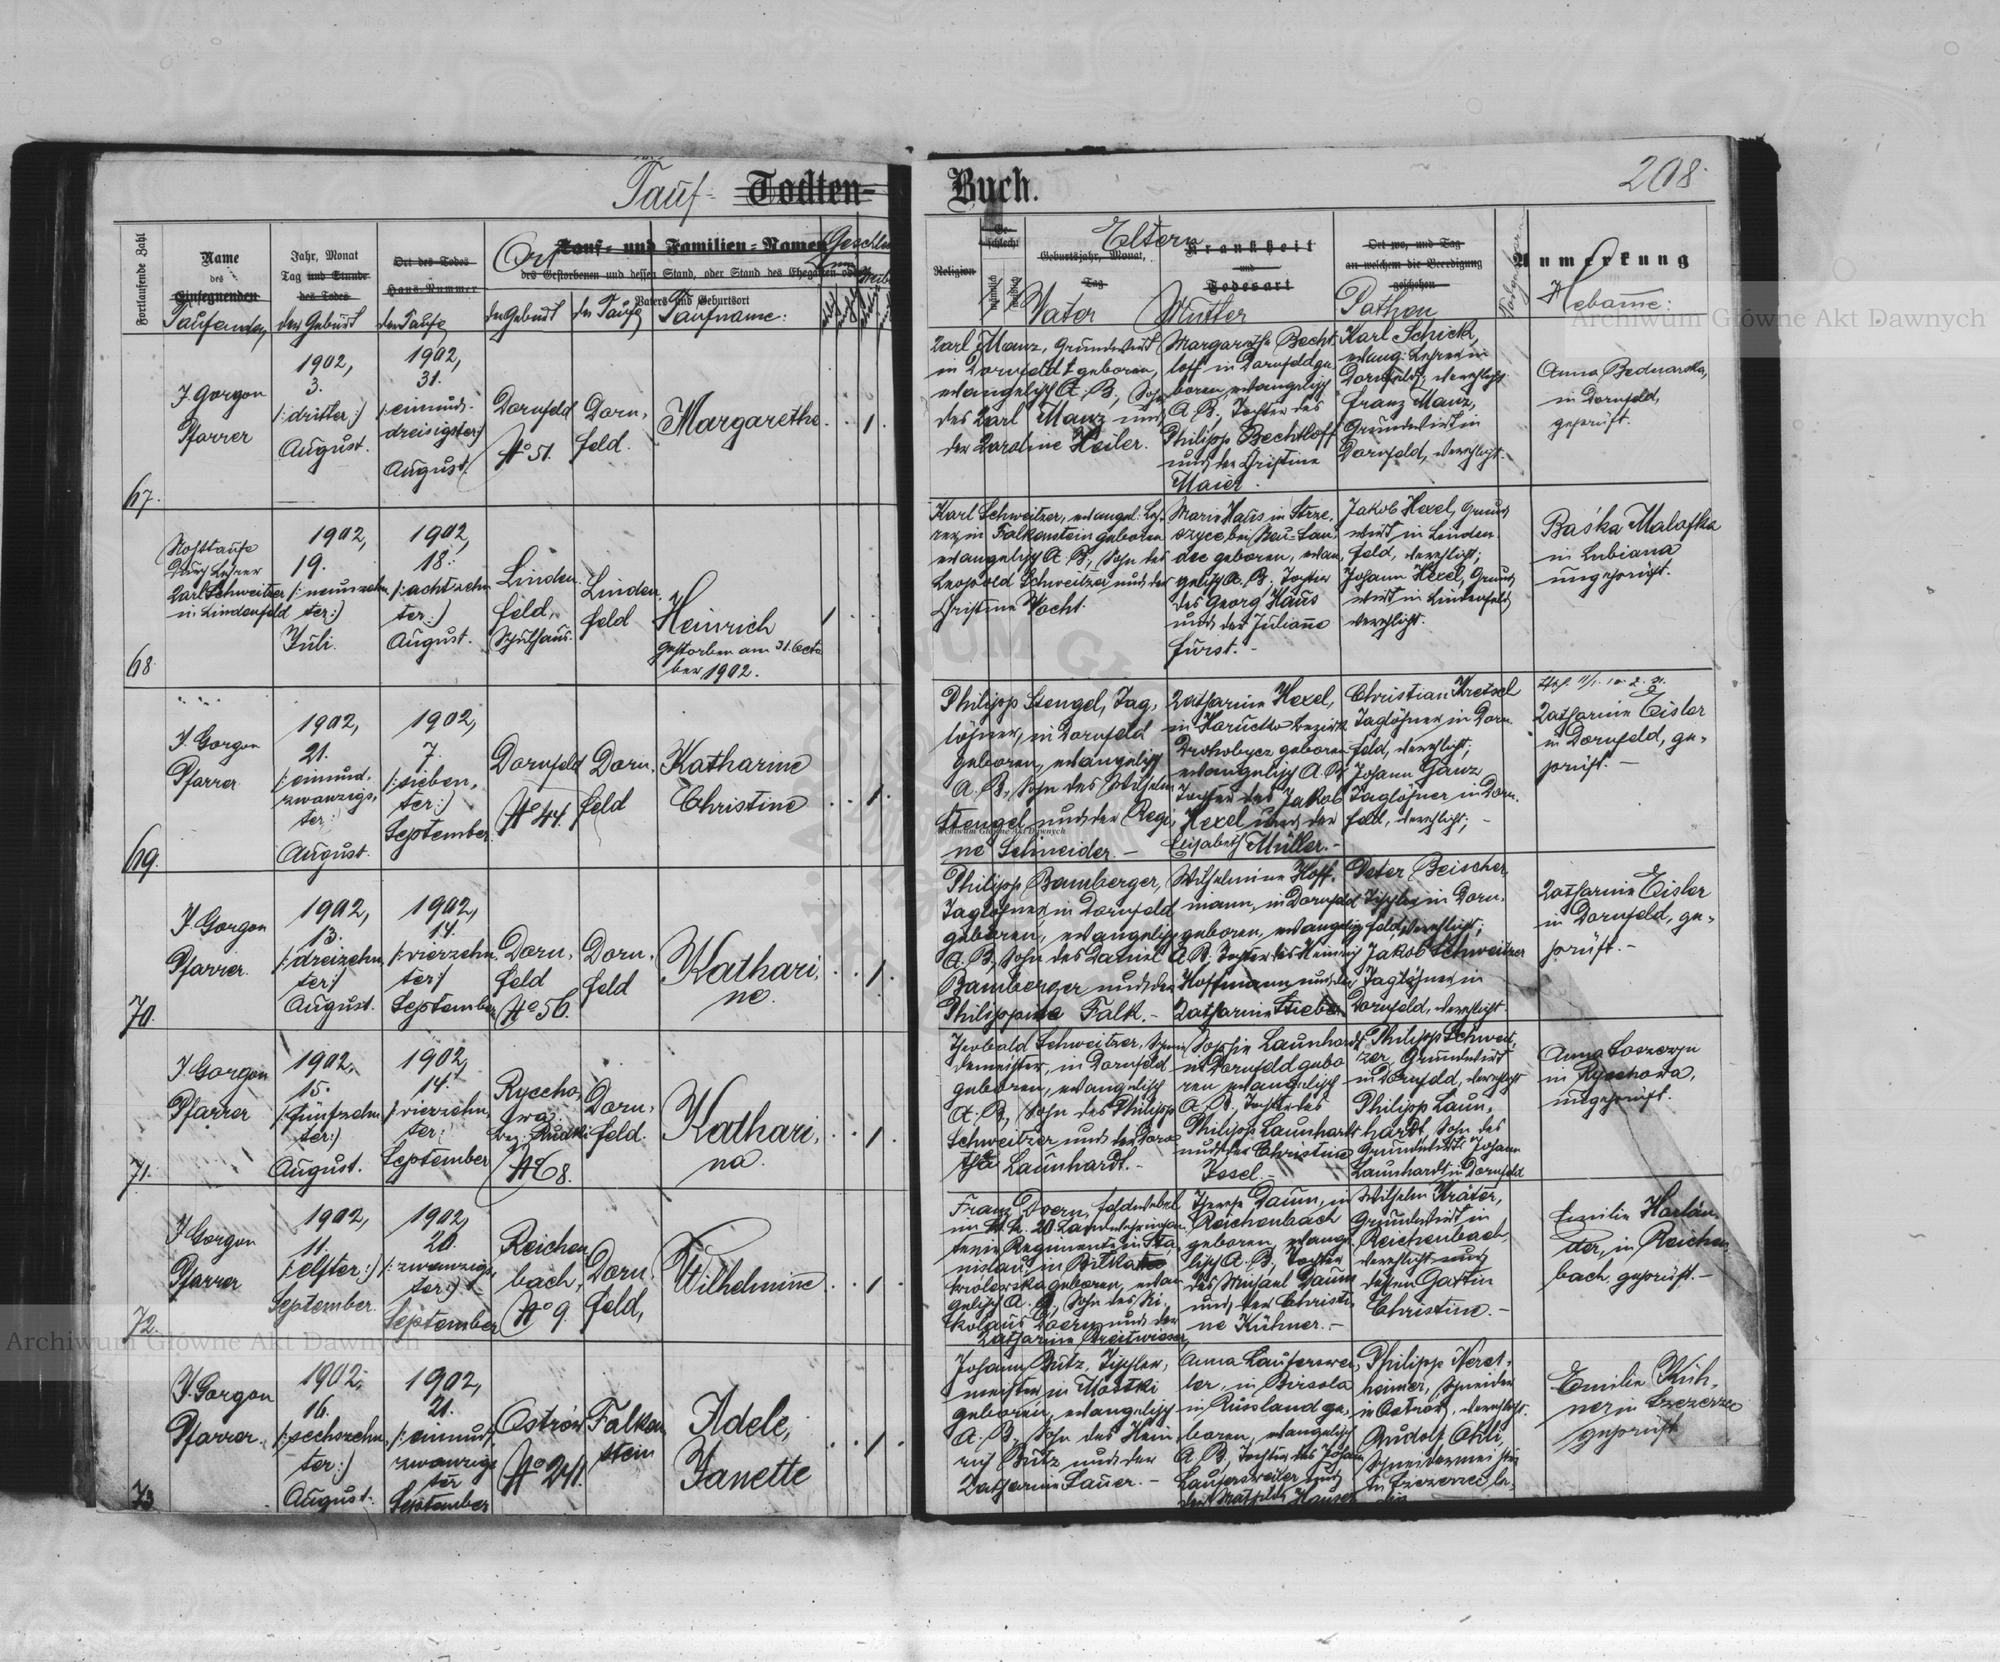 Tauf- Todten-Buch.
208.
Fortlaufende Zahl
Name
des
Einsegnenden
Taufenden
Jahr, Monat
Tag und Stunde
des Todes
der Geburt
Ort des Todes
Haus-Nummer
der Taufe
Ort
Tauf- und Familien-Namen
des Gestorbenen und dessen Stand, oder Stand des Ehegatten oder
Vaters und Geburtsort
der Geburt
der Taufe
Taufname:
Religion
Eltern
Geburtsjahr, Monat,
Tag
Vater
Krankheit
und
Todesart
Mutter
Ort wo, und Tag
an welchem die Beerdigung
geschehen
Pathen
Anmerkung
Hebamme:
67.
J. Gorgon
Pfarrer
1902,
3.
/:dritter:/
August.
1902,
31.
/:einund-
dreisigster:/
August.
Dornfeld
No 51.
Dorn-
feld.
Margarethe.
1
Karl Manz, Grundwirt
in Dornfeld geboren,
evangelisch A. B., Sohn
des Karl Manz und
der Karoline Heiler.
Margarethe Becht-
loff in Dornfeld ge-
boren, evangelisch
A. B., Tochter des
Philipp Bechtloff
und der Christine
Maier.
Karl Schick,
evang. Lehrer in
Dornfeld, verehligt
Franz Manz,
Grundwirt in
Dornfeld, verehligt.
Anna Bednarska,
in Dornfeld,
geprüft.
68.
Nothtaufe
durch Lehrer
Karl Schweitzer
in Lindenfeld
1902,
19.
/:neunzehn-
ter:/
Juli.
1902,
18.
/:achtzehn-
ter:/
August.
Linden-
feld,
Schulhaus.
Linden-
feld
Heinrich
gestorben am 31. Octo-
ber 1902.
1
Karl Schweitzer, evangel. Leh-
rer, in Falkenstein geboren
evangelisch A. B., Sohn des
Leopold Schweitzer und der
Christine Wocht.
Marie Haus in Strze-
czyce bei Neu-San-
dec geboren, evan-
gelisch A. B., Tochter
des Georg Haus
und der Juliane
Fürst.
Jakob Hexel, Grund-
wirt in Linden-
feld, verehligt;
Johann Hexel, Grund-
wirt in Lindenfeld
verehligt.
Baśka Malafka
in Lubiana
ungeprüft.
69.
J. Gorgon
Pfarrer
1902,
21.
/:einund-
zwanzigs-
ter:/
August.
1902,
7.
/:sieben-
ter:/
September.
Dornfeld
No 44.
Dorn-
feld
Katharine
Christine
1
Philipp Stengel, Tag-
löhner, in Dornfeld
geboren, evangelisch
A. B., Sohn des Wilhelm
Stengel und der Regi-
ne Schneider.
Katharine Hexel,
in Bezirk
Drohobycz geboren
evangelisch A. B.
Tochter des Jakob
Hexel und der
Elisabeth Müller.
Christian Kretzel
Taglöhner in Dorn-
feld, verehligt;
Johann Ganz
Taglöhner in Dorn-
feld, verehligt;
Katharine Eisler
in Dornfeld, ge-
prüft.
70.
J. Gorgon
Pfarrer.
1902,
13.
/:dreizehn-
ter:/
August.
1902,
14.
/:vierzehn-
ter:/
September
Dorn-
feld
No 56.
Dorn-
feld
Kathari-
ne.
1
Philipp Bamberger,
Taglöhner, in Dornfeld
geboren, evangelisch
A. B., Sohn des Daniel
Bamberger und der
Philippine Falk.
Wilhelmine Hoff-
mann, in Dornfeld
geboren, evangelisch
A. B. Tochter des Heinrich
Hoffmann und der
Katharine Stieber
Peter Beischer,
Tischler in Dorn-
feld, verehligt;
Jakob Schweitzer
Taglöhner in
Dornfeld, verehligt.
Katharine Eisler
in Dornfeld, ge-
prüft.
71.
J. Gorgon
Pfarrer
1902,
15.
/:fünfzehn-
ter:/
August.
1902,
14.
/:vierzehn-
ter:/
September
Rycho-
wa,
bez. Rudki
No 68.
Dorn-
feld.
Kathari-
na.
1
Theobald Schweitzer,
in Dornfeld
geboren, evangelisch
A. B., Sohn des Philipp
Schweitzer und der Doro-
thea Launhardt.
Sophie Launhardt
in Dornfeld gebo-
ren evangelisch
A. B., Tochter des
Philipp Launhardt
und der Christine
Issel.
Philipp Schweit-
zer, Grundwirt
in Dornfeld, verehligt
Philipp Laun-
hardt, Sohn des
Grundwirts Johann
Launhardt in Dornfeld
Anna
in Rychowa,
ungeprüft.
72.
J. Gorgon
Pfarrer
1902,
11.
/:elfter:/
September.
1902,
20.
/:zwanzigs-
ter:/
September
Reichen-
bach,
No 9.
Dorn-
feld,
Wilhelmine
1
Franz Doern, Feldwebel
im K. k. 20. Landwehrinfan-
terie Regimente in Sta-
nislau, in Bilka
królewska geboren, evan-
gelisch A. B., Sohn des Ni-
kolaus Doern und der
Katharine Breitwieser,
Therese Daum, in
Reichenbach
geboren, evange-
lisch A. B., Tochter
des Michael Daum
und der Christi-
ne Kühner.
Wilhelm Kräter,
Grundwirt in
Reichenbach,
verehligt und
dessen Gattin
Christine.
Emilie
in Reichen-
bach, geprüft.
73.
J. Gorgon
Pfarrer.
1902,
16.
/:sechszehn-
ter:/
August.
1902,
21.
/:einund-
zwanzigs-
ter
September
Ostrów
No 241.
Falken-
stein
Adele,
Janette
1
Johann Butz, Tischler-
meister in Mostki
geboren, evangelisch
A. B., Sohn des Hein-
rich Butz und der
Katharine Lauer.
Anna Lauterswei-
ler, in Birsola
in Russland ge-
boren, evangelisch
A. B., Tochter des Johann
Lautersweiler und
der
Philipp Neret-
heimer, Schneider
in Ostrów, verehligt.
Rudolf Ohli,
Schneidermeister
Emilie Küh-
ner in Szczerzec
geprüft
Archiwum Główne Akt Dawnych
Archiwum Główne Akt Dawnych
Archiwum Główne Akt Dawnych